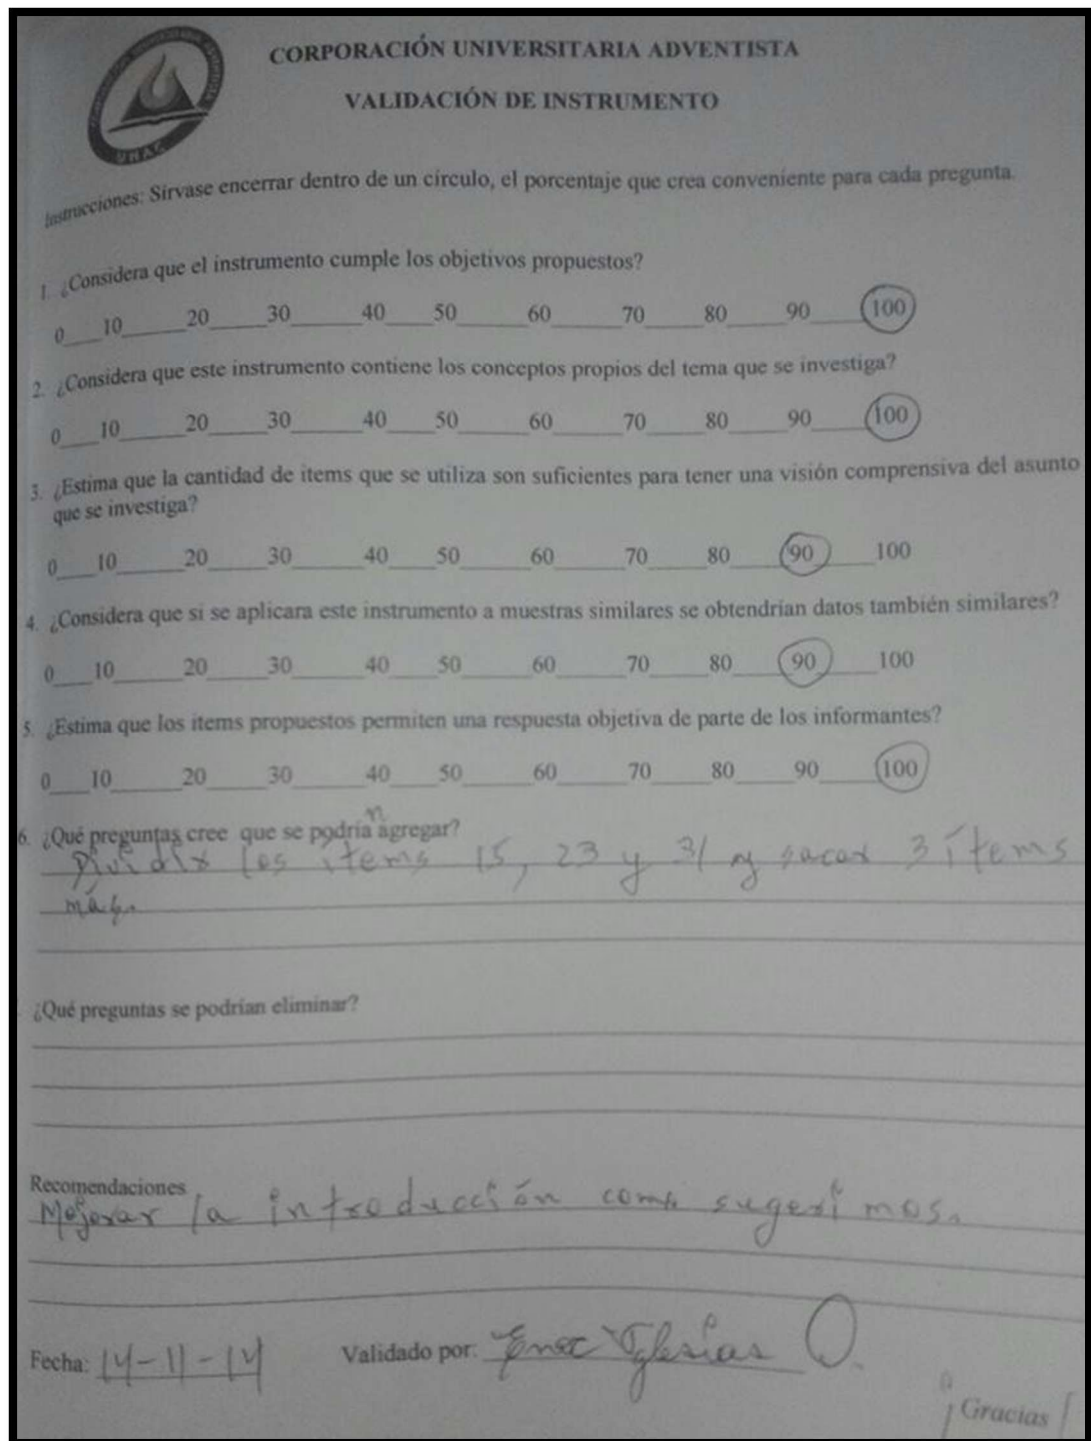 CORPORACIÓN UNIVERSITARIA ADVENTISTA
VALIDACIÓN DE INSTRUMENTO
UNAC
Instrucciones: Sírvase encerrar dentro de un círculo, el porcentaje que crea conveniente para cada pregunta.
1. ¿Considera que el instrumento cumple los objetivos propuestos?
0____10______20______30_______40_____50_______60_______70______80______90_____100
2. ¿Considera que este instrumento contiene los conceptos propios del tema que se investiga?
0____10______20______30_______40_____50_______60_______70______80______90_____100
3. ¿Estima que la cantidad de items que se utiliza son suficientes para tener una visión comprensiva del asunto
que se investiga?
0____10______20______30_______40_____50_______60_______70______80______90_____100
4. ¿Considera que si se aplicara este instrumento a muestras similares se obtendrían datos también similares?
0____10______20______30_______40_____50_______60_______70______80______90_____100
5. ¿Estima que los items propuestos permiten una respuesta objetiva de parte de los informantes?
0____10______20______30_______40_____50_______60_______70______80______90_____100
6. ¿Qué preguntas cree que se podrían agregar?
Dividir los items 15, 23 y 31 y sacar 3 ítems
más.
¿Qué preguntas se podrían eliminar?
Recomendaciones
Mejorar la introducción como sugerimos.
Fecha: 14-11-14 Validado por: Enoc Iglesias O.
¡Gracias!